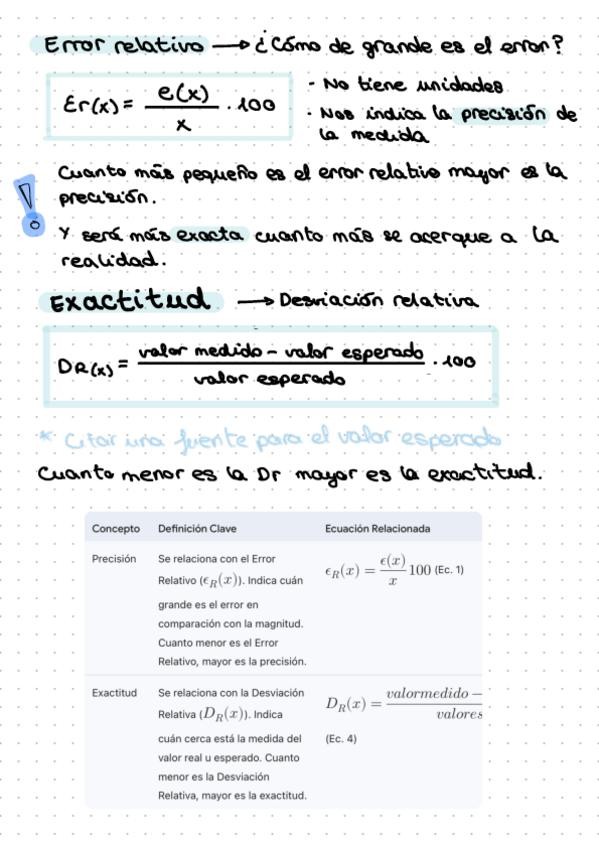 Error relativo → ¿Cómo de grande es el error?
Er(x) = e(x) / x · 100
- No tiene unidades
· Nos indica la precisión de
la medida
Cuanto más pequeño es el error relativo mayor es la
precisión.
Y será más exacta cuanto más se acerque a la
realidad.
Exactitud → Desviación relativa
DR(x) = valor medido - valor esperado / valor esperado · 100
* Citar una fuente para el valor esperado
Cuanto menor es la Dr mayor es la exactitud.
Concepto Definición Clave Ecuación Relacionada
Precisión Se relaciona con el Error
Relativo (ϵR(x)). Indica cuán
grande es el error en
comparación con la magnitud.
Cuanto menor es el Error
Relativo, mayor es la precisión.
ϵR(x) = ϵ(x) / x 100 (Ec. 1)
Exactitud Se relaciona con la Desviación
Relativa (DR(x)). Indica
cuán cerca está la medida del
valor real u esperado. Cuanto
menor es la Desviación
Relativa, mayor es la exactitud.
DR(x) = valormedido − / valores
(Ec. 4)